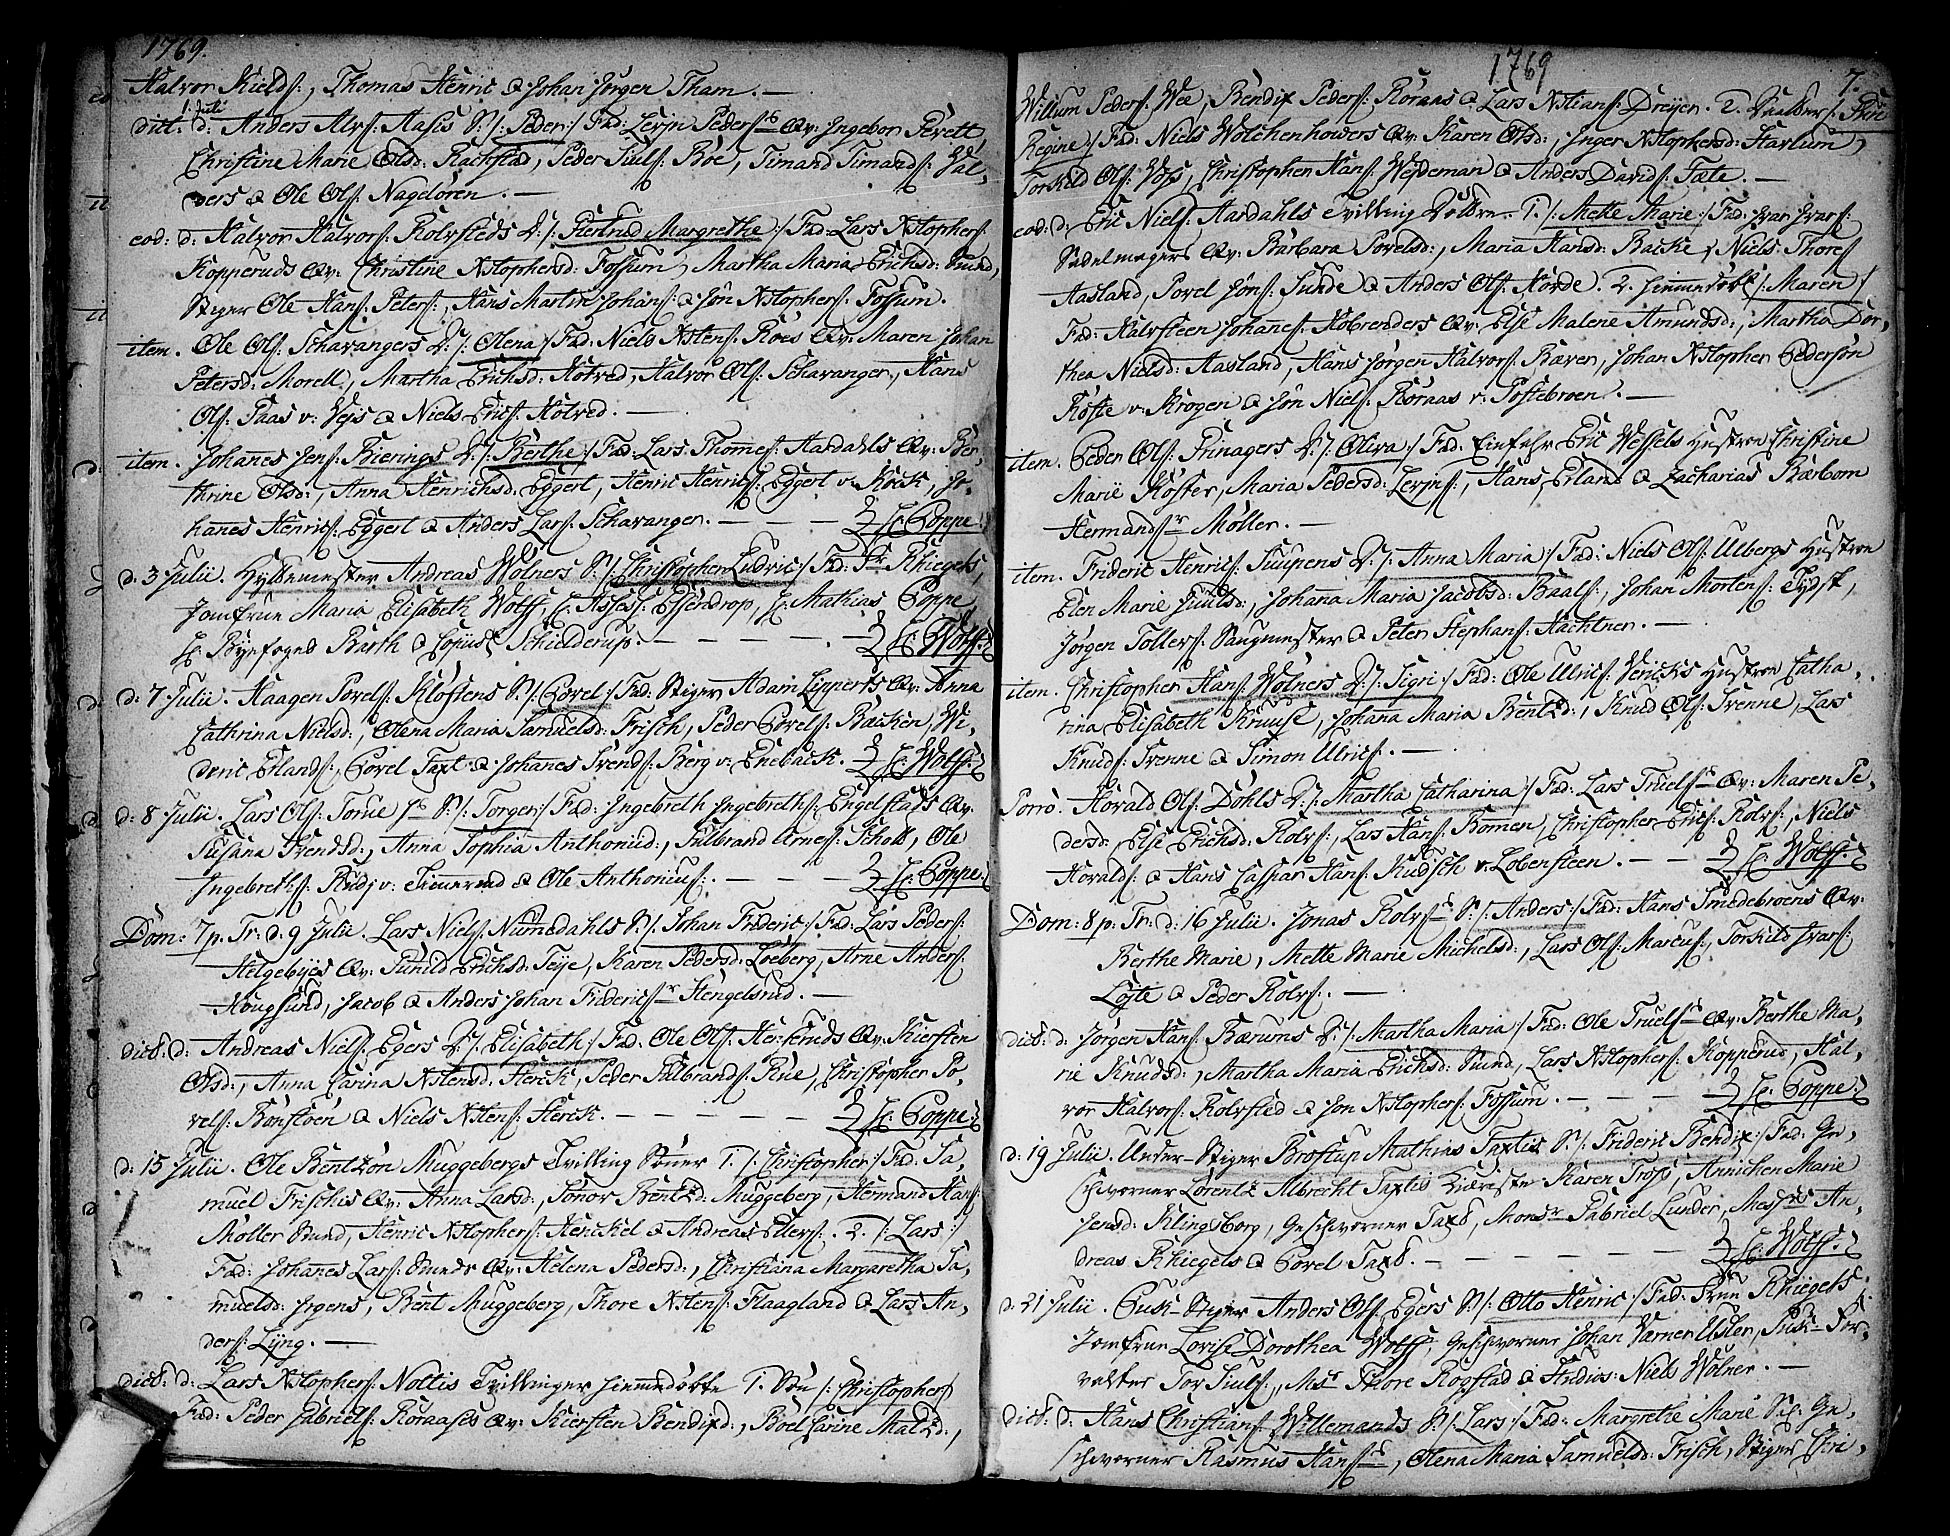 1769.
Halvor Kields:, Thomas Henric & Johan Jørgen Tham. —
1. Julii
dit: d: Anders Alvs: Aasis S: /: Peder :/ Fad: Lerjn Peders: Qv: Ingebor
Christine Marie Olsd: Rachstad, Peder Siuls: Boe, Timand Timands: Val-
ders & Ole Ols: Nageloren. —
eod: d: Halvor Halvors: Rolvsteds D: /: Giertrud Margrethe :/ Fad: Lars Xstophers:
Kopperuds Qv: Christine Xstophersd: Fossum, Martha Maria Erichsd: Smend,
Stiger Ole Hans: Peters:, Hans Martin Johans: & Jon Xstophers: Fossum.
item. Ole Ols: Schavangers D: /: Olena :/ Fad: Niels Xstens: Roes Qv: Maren Johan
Petersd: Morell, Martha Erichsd: Hotved, Halvor Ols: Schavanger, Hans
Ols: Paas v: Vejs & Niels Erics: Hotved. —
item. Johanes Jens: Bierings D: /: Berthe :/ Fad: Lars Thomes: Aardahls Qv: Ber-
thrine Olsd:, Anna Henrichsd: Eggert, Henric Henrics: Eggert v: Kock, Jo-
hanes Henrics: Eggert & Anders Lars: Schavanger. — — — H: Poppe.
d: 3 Julii. Hyttemester Andreas Wølners S: /: Christopher Ludvic :/ Fad: Fr Rhiegels,
Jomfrue Maria Elisabeth Wolff, H: Asses: Essendrop, H: Mathias Poppe
H: Byefoged Barth & Copiist Schielderup. — — — H: Wolff.
d: 7 Julii. Haagen Povels: Kloftens S: /: Povel :/ Fad: Stiger Adam Lipperts Qv: Anna
Cathrina Nielsd:, Olena Maria Samuelsd: Frisch, Peder Povels: Backen, Wi-
deric Erlands:, Povel Taxt & Johanes Svends: Berg v: Eneback. H: Wolff.
d: 8 Julii. Lars Ols: Torue S: /: Torger :/ Fad: Ingebreth Ingebreths: Engelstads Qv:
Susana Svendsd:, Anna Sophia Anthonid:, Gulbrand Arnes: Schott, Ole
Ingebreths: Rudj v: Timerud & Ole Anthonius:. — — — H: Poppe.
Dom: 7 p. Tr: d: 9 Julii. Lars Niels: Numedahls S: /: Johan Frideric :/ Fad: Lars Peders:
Helgebyes Qv: Gunild Erichsd: Teye, Karen Pedersd: Loeberg, Arne Anders:
Hougsund, Jacob & Anders Johan Fridericsr Stengelsrud. —
dict: d: Andreas Niels: Egers D: /: Elisabeth :/ Fad: Ole Ols: Henseruds Qv: Kiersten
Olsd:, Anna Carina Xstensd: Sterck, Peder Gulbrands: Rue, Christopher Po-
vels: Bonstoen & Niels Xstens: Sterck. — — — H: Poppe.
d: 15 Julii. Ole Bentzøn Muggebergs Tvilling Sønner 1. /: Christopher :/ Fad: Sa-
muel Frischis Qv: Anna Larsd:, Sonor Bentzd: Muggeberg, Hermand Hans:
Møller Smend, Henric Xstophers: Henckel & Andreas Ellers:. 2. /: Lars :/
Fad: Johanes Lars: Smeds Qv: Helena Pedersd:, Christiana Margaretha Sa-
muelsd: Jrgens, Bent Muggeberg, Thore Xstens: Flaagland & Lars An-
ders: Lyng. —
dict: d: Lars Xstophers: Noltis Tvillinger hiemmedøbte 1. Søn /: Christopher :/
Fad: Peder Gabriels: Roraasis Qv: Kiersten Bendixd:, Boel Carine Matzd:,
1769
7.
Willum Peders: Wee, Bendix Peders: Roraas & Lars Xstians: Dreyer. 2. Daatter /:
Regine :/ Fad: Niels Wolchenhowers Qv: Karen Olsd:, Inger Xstophersd: Starlum,
Torkild Ols: Voss, Christopher Hans: Wejdeman & Anders Davids: Tæte. —
eod: d: Eric Niels: Aardahls Tvilling Døttre. 1. /: Mette Marie :/ Fad: Jvar Jvars:
Sadelmagers Qv: Barbara Povelsd:, Maria Hansd: Backe, Niels Thores:
Aasland, Povel Jøns: Sunde & Anders Ols: Horde. 2. hiemedøbt /: Maren :/
Fad: Halvsteen Johanes: Kobrenders Qv: Else Malene Amundsd:, Martha Dor-
thea Nielsd: Aasland, Hans Jørgen Halvors: Ræver, Johan Xstopher Pedersøn
Røste v: Krogen & Jøn Niels: Roraas v: Postebroen. —
item. Peder Ols: Prinagers D: /: Oliva :/ Fad: Einfahr Eric Wessels Hustroe Christine
Marie Køster, Maria Pedersd: Lerjns:, Hans Erland & Zacharias Barbom
Hermandsr Møller. —
item. Frideric Henrics: Suupens D: /: Anna Maria :/ Fad: Niels Ols: Ulbergs Hustroe
Elen Marie Juulsd:, Johana Maria Jacobsd: Baals:, Johan Mortens: Tydst,
Jørgen Tollers: Saugmester & Peter Stephans: Hachtner. —
item. Christopher Hans: Wølners D: /: Sigri :/ Fad: Ole Ulrics: Vericks Hustroe Catha-
rina Elisabeth Kruuse, Johana Maria Bentzd:, Knud Ols: Svenne, Lars
Knuds: Svenne & Simon Ulrics:. —
Porro. Hovald Ols: Døhls D: /: Martha Catharina :/ Fad: Lars Truels: Qv: Maren Pe-
dersd:, Else Erichsd: Rolvs:, Lars Hans: Bomen, Christopher Erics: Rolvs:, Niels
Hovalds: & Hans Caspar Hans: Kudsch v: Lobensteen. — — H: Wolff.
Dom: 8 p: Tr: d: 16 Julii. Jonas Rolvs: S: /: Anders :/ Fad: Hans Smedebroens Qv:
Berthe Marie, Mette Marie Michelsd:, Lars Ols: Marcus:, Torkild Jvars:
Lojte & Peder Rolvs:. —
dict: d: Jørgen Hans: Bærums D: /: Martha Maria :/ Fad: Ole Truels: Qv: Berthe Ma-
rie Knudsd:, Martha Maria Erichsd: Smend, Lars Xstophers: Kopperud, Hal-
vor Halvors: Rolvsted & Jon Xstophers: Fossum. — — — H: Poppe.
d: 19 Julii. Under-Stiger Brostup Mathias Taxtis S: /: Frideric Bendix :/ Fad: Ge-
schworner Lorentz Albrecht Taxtis Kiæreste Karen Tross, Annichen Marie
Jensd: Klingsborg, Geschworner Taxt, Monsr Gabriel Lunder, Messrs An-
dreas Rhiegels & Povel Taxt. — — — H: Wolff.
d: 21 Julii. Pusk-Stiger Anders Ols: Egers S: /: Otto Henric :/ Fad: Frue Rhiegels
Jomfrue Lovise Dorothea Wolff, Geschworner Johan Varner Usler, Pusk-For-
valter Tor Siuls:, Msr Thore Rogstad & Studios: Niels Wølner. —
dict: d: Hans Christians: Willemands S: /: Lars :/ Fad: Margrethe Marie Sl: Ge-
schworner Rasmus Hans:, Olena Maria Samuelsd: Frisch, Stiger Chri-